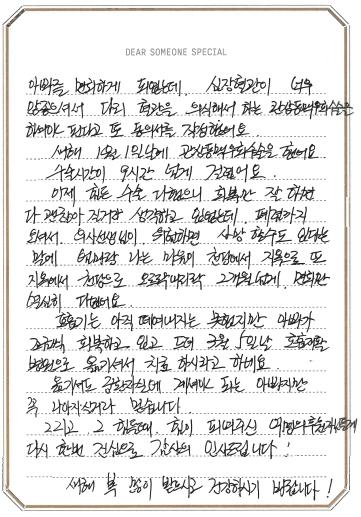 DEAR SOMEONE SPECIAL
아버를 면회하게 되었는데, 심장혈관이 너무
안좋으셔서 다리 혈관을 의식해서 하는 관상동맥우회수술은
하셔야 된다고 또 동의서를 작성했어요.
새해 1월 1일날에 관상동맥우회술을 했어요
수술시간이 9시간 넘게 걸렸어요.
이제 힘든 수술 다했으니 회복만 잘 하면
다 괜찮아 질거란 생각하고 있었는데, 폐렴까지
오셔서 의사선생님이 위험하면 사망 할수도 있다는
말에 엄마랑 나는 마음이 천당에서 지옥으로 또
지옥에서 천당으로 오르락내리락 2개월넘게 면회만
열심히 다녔어요.
호흡기는 아직 떼어내지는 못했지만 아빠가
조금씩 회복하고 있고 드뎌 3월 5일날 호흡재활
병원으로 옮기셔서 치료 하시라고 하네요.
옮기셔도 중환자실에 계셔야 하는 아빠지만
꼭 나아지실거라 믿습니다.
그리고 그 힘든때, 힘이 되어주신
다시 한번 진심으로 감사의 인사드립니다!
새해 복 많이 받으시고 건강하시기 바랍니다!